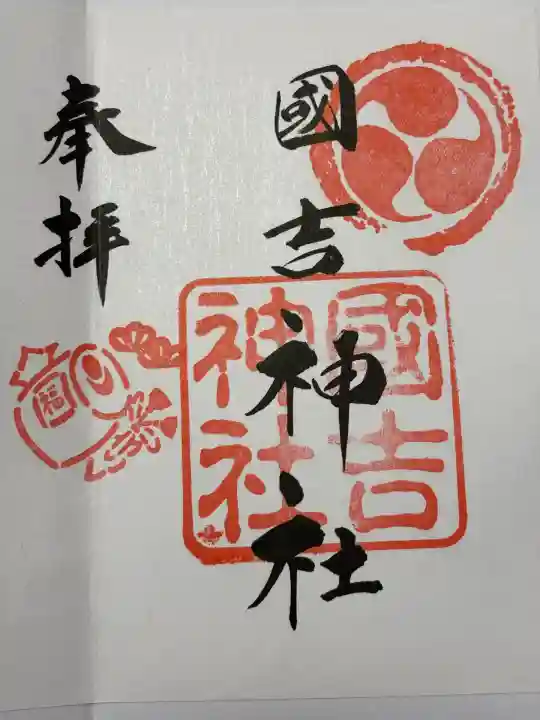 國吉神社
國吉
神社
奉拝